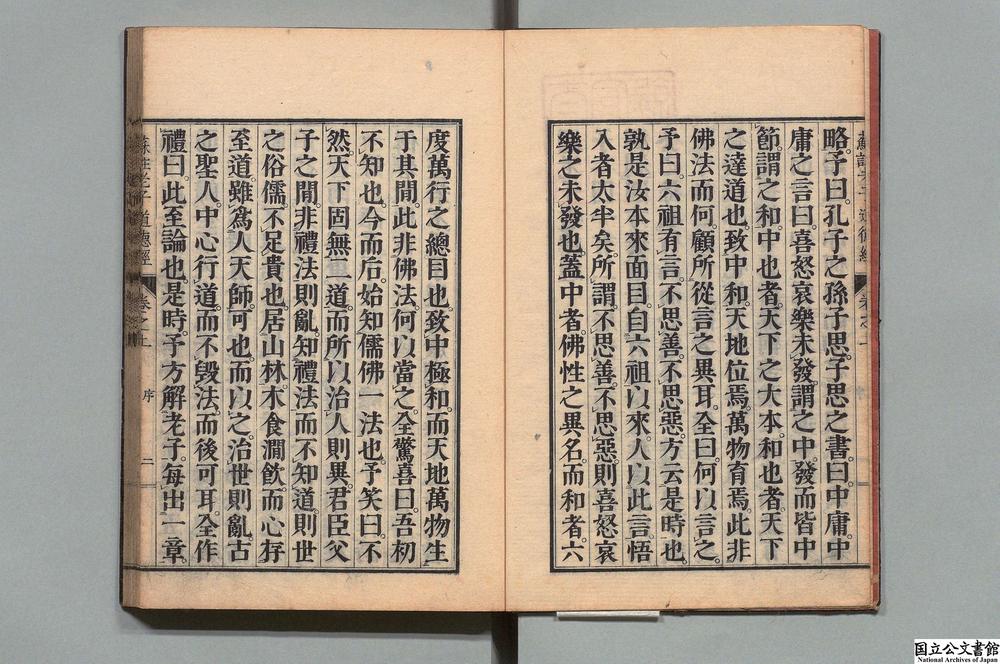 略。予曰。孔子之孫子思。子思之書。曰中庸。中
庸之言曰。喜怒哀樂未發。謂之中。發而皆中
節。謂之和。中也者。天下之大本。和也者。天下
之達道也。致中和。天地位焉。萬物育焉。此非
佛法而何。顧所從言之異耳。全曰。何以言之。
予曰。六祖有言。不思善。不思惡。方云是時也。
孰是汝本來面目。自六祖以來。人以此言悟
入者太半矣。所謂不思善。不思惡。則喜怒哀
樂之未發也。蓋中者。佛性之異名。而和者。六
度萬行之總目也。致中極和。而天地萬物生
于其閒。此非佛法何以當之。全驚喜曰。吾初
不知也。今而后。始知儒佛一法也。予笑曰。不
然。天下固無二道。而所以治人則異。君臣父
子之閒。非禮法則亂。知禮法而不知道。則世
之俗儒。不足貴也。居山林。木食澗飮。而心存
至道。雖爲人天師。可也。而以之治世則亂。古
之聖人。中心行道。而不毀法。而後可耳。全作
禮曰。此至論也。是時。予方解老子。每出一章。
蘇註老子道德經 卷之上 序 二
国立公文書館
National Archives of Japan